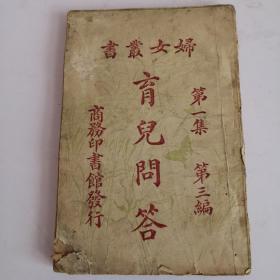 婦女叢書
第一集 第三編
育兒問答
商務印書館發行